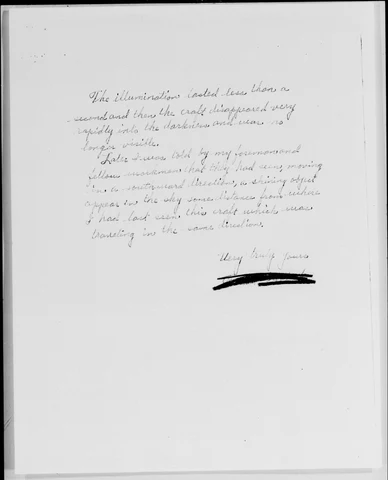 The illumination lasted less than a
second and then the craft disappeared very
rapidly into the darkness and was no
longer visible.
Later I was told by my foreman and
fellow workmen that they had seen, moving
in a southward direction, a shining object
appear in the sky some distance from where
I had last seen this craft which was
traveling in the same direction.
Very truly yours